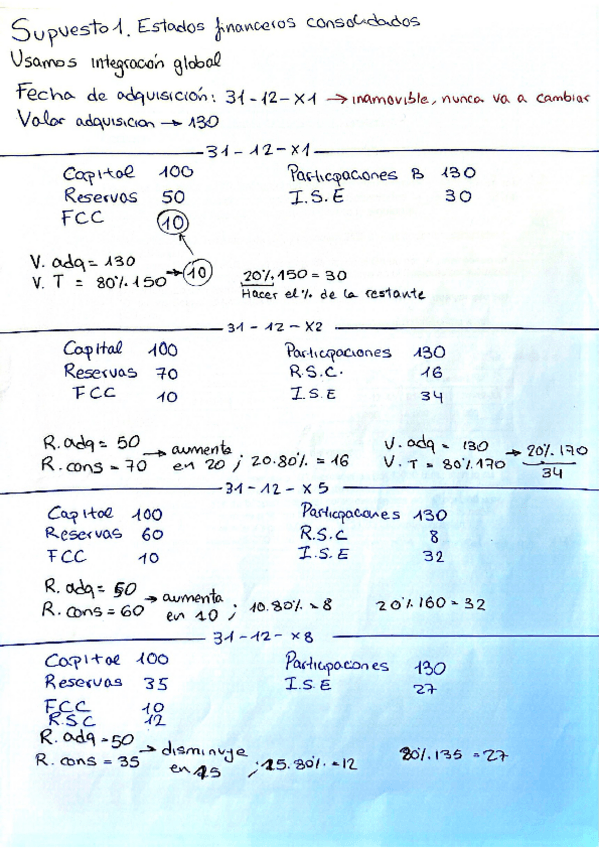 Supuesto 1. Estados financeros consolidados
Usamos integración global
Fecha de adquisición: 31-12-X1 → inamovible, nunca va a cambiar
Valor adquisicion → 130
31-12-X1
Capital 100 Participaciones B 130
Reservas 50 I.S.E 30
FCC 10
V. adq = 130
V. T = 80%.150 → 10 20%.150 = 30
Hacer el % de la restante
31-12-X2
Capital 100 Participaciones 130
Reservas 70 R.S.C. 16
FCC 10 I.S.E 34
R. adq = 50 → aumenta V. adq = 130 → 20%.170
R. cons = 70 en 20 ; 20.80% = 16 V. T = 80%.170 34
31-12-X5
Capital 100 Participaciones 130
Reservas 60 R.S.C 8
FCC 10 I.S.E 32
R. adq = 50 → aumenta
R. cons = 60 en 10 ; 10.80% = 8 20%.160 = 32
31-12-X8
Capital 100 Participaciones 130
Reservas 35 I.S.E 27
FCC 10
R.S.C 12
R. adq = 50 → disminuye
R. cons = 35 en 15 ; 15.80% = 12 80%.135 = 27